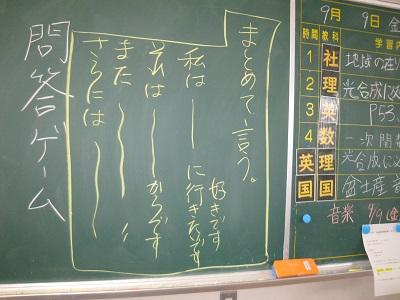 まとめて言う。
私は〜に行きたいです
好きです
それは〜からです
また〜
さらには〜
問答ゲーム
9月 9日 金
時間 教科 学習内
1 社 地域の在り
2 理 光合成に必
3 英 P53、
4 数 一次関数
英 理 光合成に必
国 国
音楽 9/9(金)